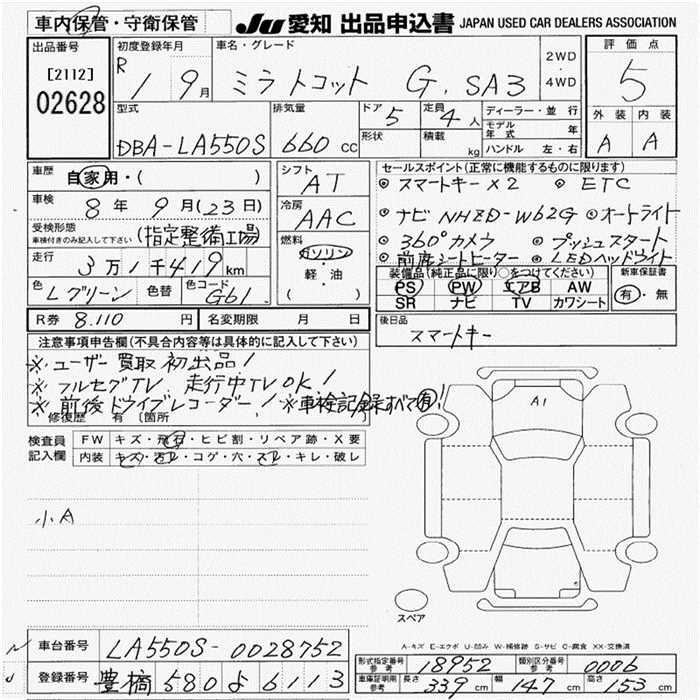 車内保管・守衛保管
JU 愛知 出品申込書 JAPAN USED CAR DEALERS ASSOCIATION
出品番号
[2112]
02628
初度登録年月
R 1 9月
車名・グレード
ミラトコット G, SA3
2WD
4WD
評価点
5
外装 内装
A A
型式
DBA-LA550S
排気量
660 cc
ドア 5
定員 4人
形状
積載 kg
ディーラー・並行
モデル年式 年
ハンドル 左・右
車歴
自家用・( )
車検
8年 9月(23日)
受検形態
車検付きのみ記入して下さい
(指定整備工場)
走行
3万1千419km
色 Lグリーン 色替 色コード G61
シフト
AT
冷房
AAC
燃料
ガソリン
軽・油
( )
セールスポイント(正常に機能するものに限ります)
◎スマートキー×2 ◎ETC
◎ナビ NHZD-W62G ◎オートライト
◎360°カメラ ◎プッシュスタート
◎前席シートヒーター ◎LEDヘッドライト
装備品(純正品に限り○をつけてください)
PS PW エアB AW
SR ナビ TV カワシート
新車保証書
有・無
R券 8.110 円 名変期限 月 日
後日品
スマートキー
注意事項申告欄(不具合内容等は具体的に記入して下さい)
※ユーザー買取初出品!
※フルセグTV 走行中TV OK!
※前後ドライブレコーダー! ※車検記録すべて有!
修復歴 有 〔箇所
検査員記入欄
FW キズ・飛石・ヒビ割・リペア跡・X要
内装 キズ・汚レ・コゲ・穴・スレ・キレ・破レ
小A
A1
スペア
A-キズ E-エクボ U-凹み W-補修跡 S-サビ C-腐食 XX-交換済
車台番号 LA550S-0028752
登録番号 豊橋 580 よ 6113
形式指定番号
参考
18952
類別区分番号
参考
0006
車庫証明用
参考
長さ 339cm 幅 147cm 高さ 153cm